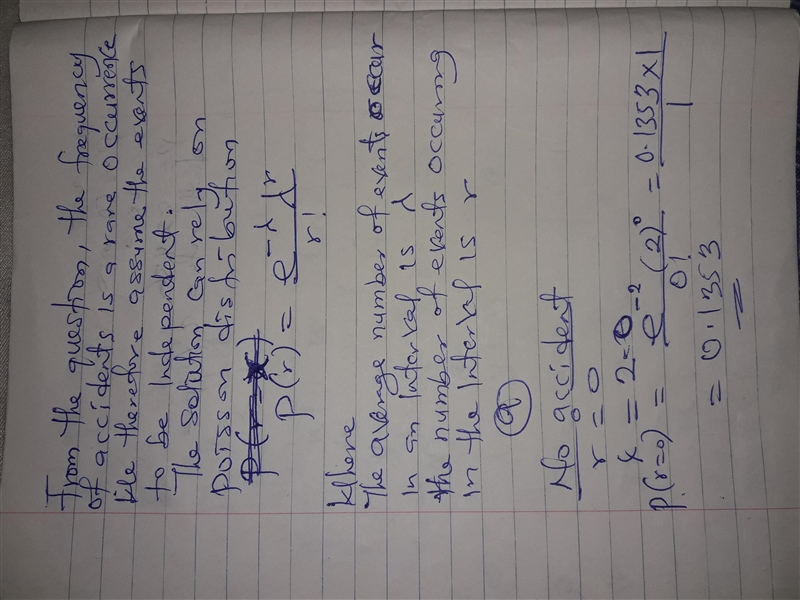 From the question, the frequency
of accidents is a rare occurrence
We therefore assume the events
to be independent.
The solution can rely on
poisson distribution
P(r) = e^-λ λ^r / r!
Where
The average number of events occur
in an interval is λ
the number of events occuring
in the interval is r
(a)
No accident
r = 0
λ = 2.0
P(r=0) = e^-2 (2)^0 / 0! = 0.1353 × 1 / 1
= 0.1353